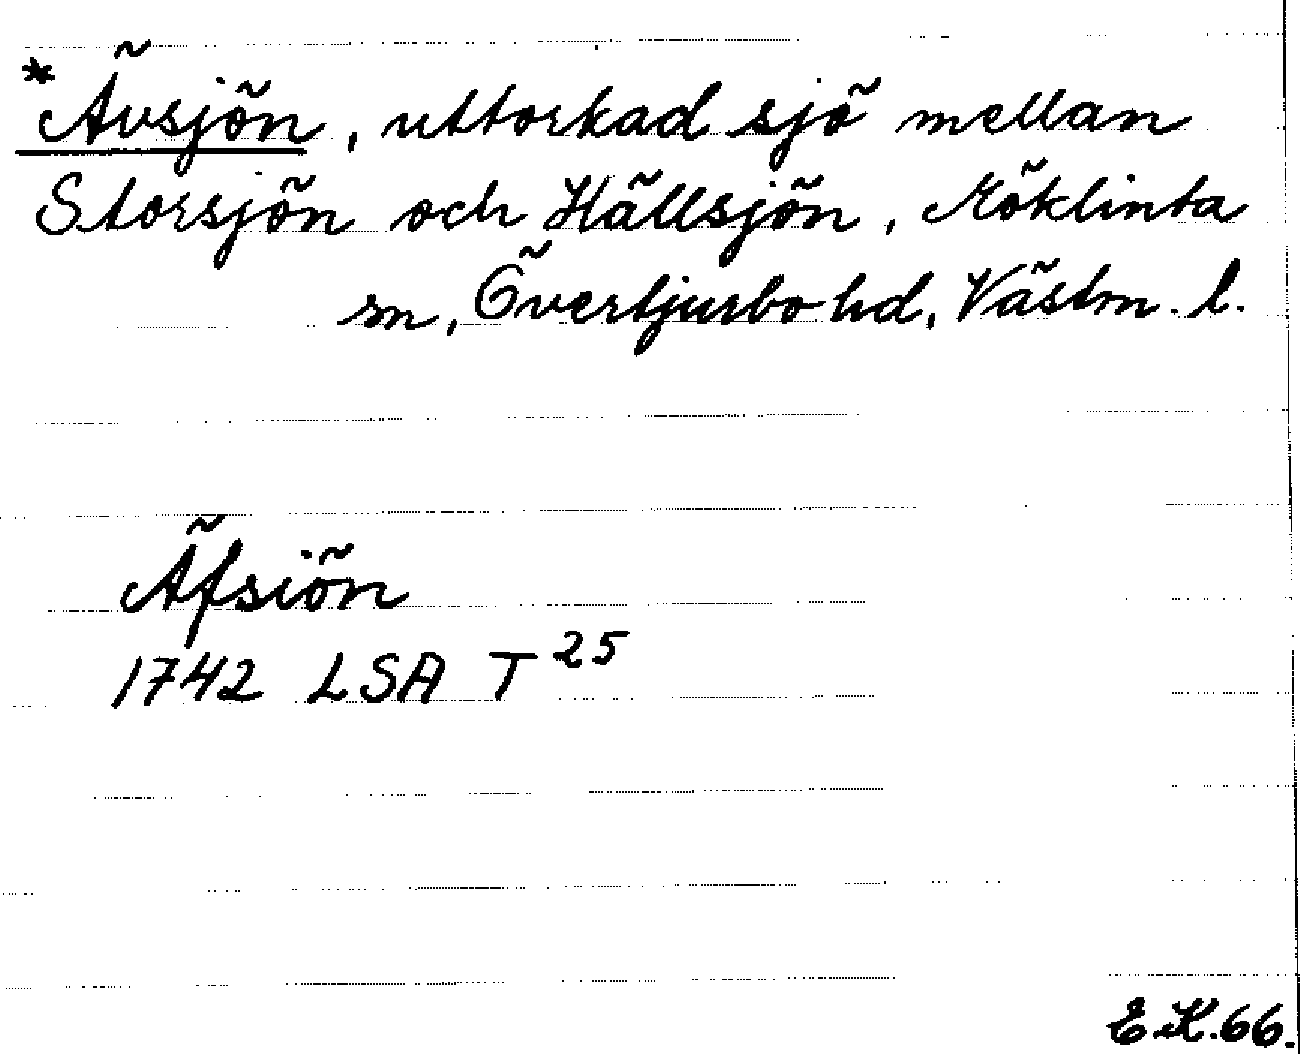 *Ävsjön, uttorkad sjö mellan
Storsjön och Hällsjön, Möklinta
sn, Övertjurbo hd, Västm. l.
Äfsiön
1742 LSA T 25
E.K.66.